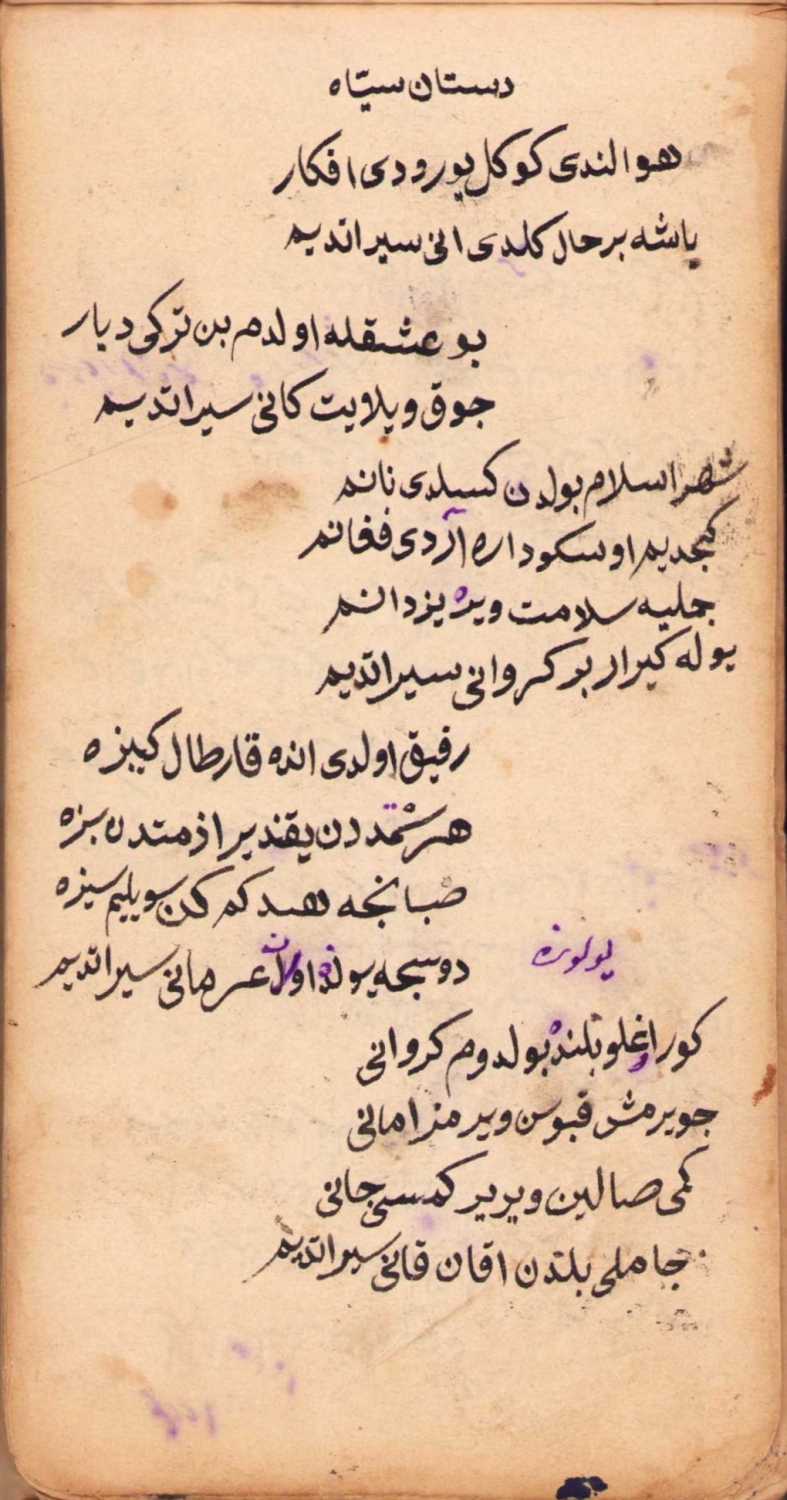 دستان سیّاه
هوالندی کوکل یورودی افکار
باشه بر حال کلدی انی سیر اتدیم
بو عشقله اولدم بن ترکی دیار
جوق ویلایت کانی سیر اتدیم
شهر اسلامبولدن کسلدی نانم
کجدیم اوسکوداره آردی فغانم
جملیه سلامت ویره یزدانم
یوله کیرار بو کروانی سیر اتدیم
رفیق اولدی انده قارطال کبیزه
هر شمددن یقندیر ازمتدن بزه
صبانجه هندکم کن سویلیم سیزه
دوسجه یولنده اولان عرمانی سیر اتدیم
یولونده
کور اوغلو بلنده بولدوم کروانی
جویرمش قبوسن ویرمز امانی
کمی صالین ویریر کمسی جانی
جاملی بلندن اقان قانی سیر اتدیم